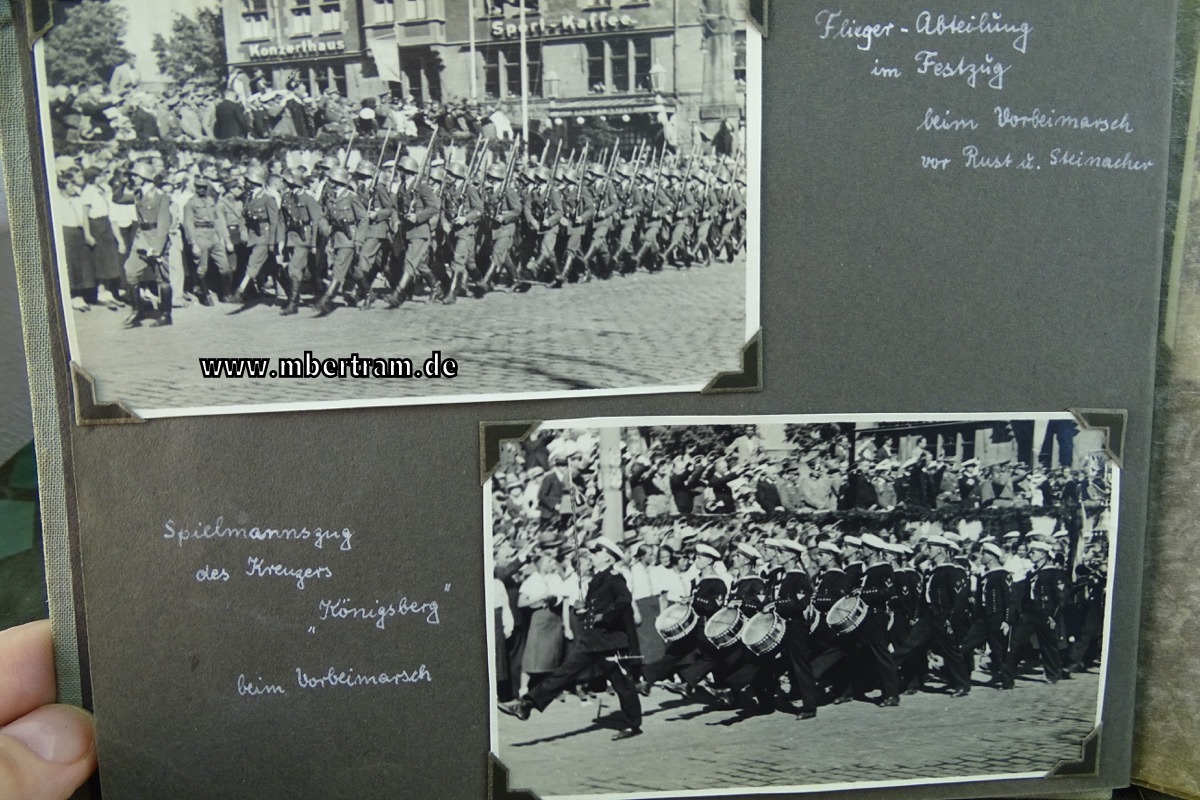 Konzerthaus
Sport-Kaffee.
Flieger-Abteilung
im Festzug
beim Vorbeimarsch
vor Rust u. Steinacher
www.mbertram.de
Spielmannszug
des Kreuzers
"Königsberg"
beim Vorbeimarsch